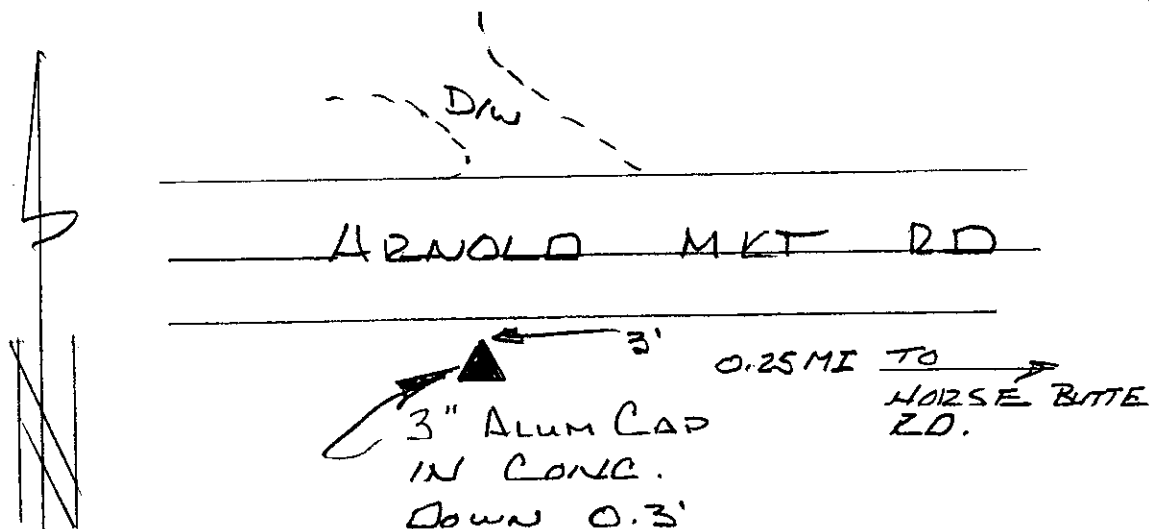 D/W
ARNOLD MKT RD
3'
0.25 MI TO
HORSE BUTTE
RD.
3" ALUM CAP
IN CONC.
DOWN 0.3'
N